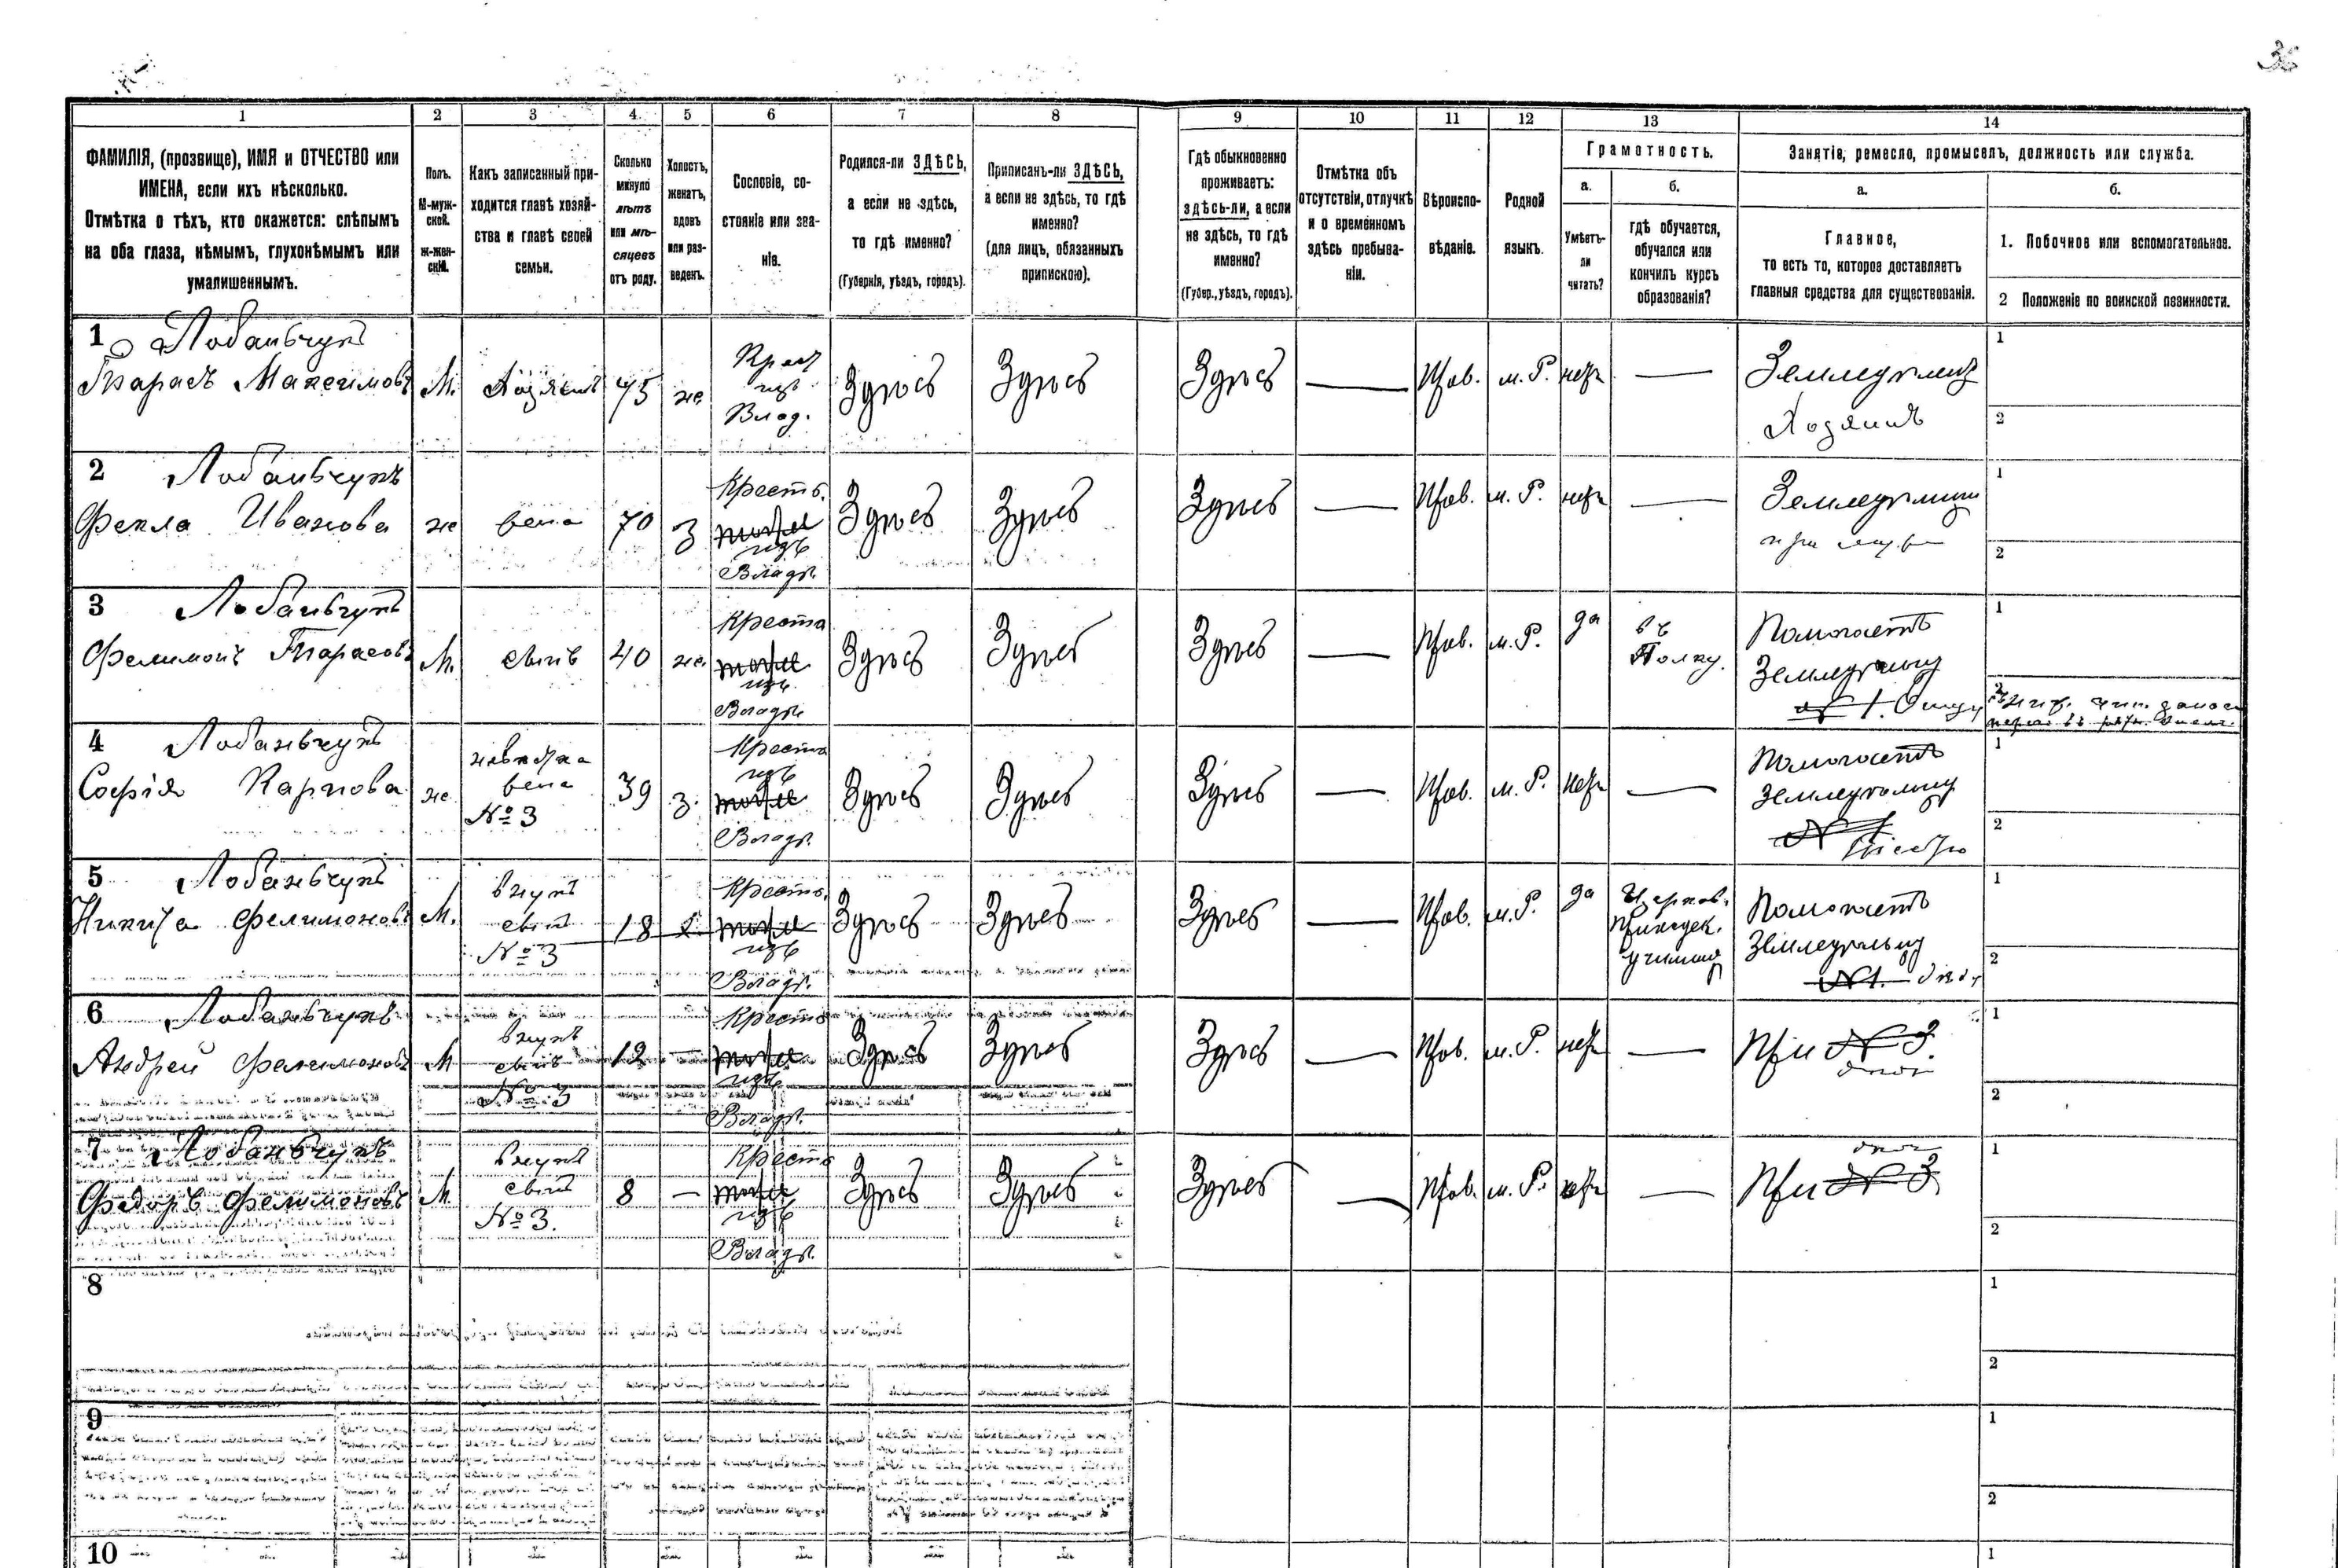 36
1 2 3 4 5 6 7 8 9 10 11 12 13 14
ФАМИЛІЯ, (прозвище), ИМЯ и ОТЧЕСТВО или
ИМЕНА, если ихъ нѣсколько.
Отмѣтка о тѣхъ, кто окажется: слѣпымъ
на оба глаза, нѣмымъ, глухонѣмымъ или
умалишеннымъ.
Полъ.
М-муж-
ской.
ж-жен-
скій.
Какъ записанный при-
ходится главѣ хозяй-
ства и главѣ своей
семьи.
Сколько
минуло
лѣтъ
или мѣ-
сяцевъ
отъ роду.
Холостъ,
женатъ,
вдовъ
или раз-
веденъ.
Сословіе, со-
стояніе или зва-
ніе.
Родился-ли ЗДѢСЬ,
а если не здѣсь,
то гдѣ именно?
(Губернія, уѣздъ, городъ).
Приписанъ-ли ЗДѢСЬ,
а если не здѣсь, то гдѣ
именно?
(для лицъ, обязанныхъ
припискою).
Гдѣ обыкновенно
проживаетъ:
здѣсь-ли, а если
не здѣсь, то гдѣ
именно?
(Губер., уѣздъ, городъ).
Отмѣтка объ
отсутствіи, отлучкѣ
и о временномъ
здѣсь пребыва-
ніи.
Вѣроиспо-
вѣданіе.
Родной
языкъ.
Грамотность.
а.
Умѣетъ-
ли
читать?
б.
гдѣ обучается,
обучался или
кончилъ курсъ
образованія?
Занятіе, ремесло, промыселъ, должность или служба.
а.
Главное,
то есть то, которое доставляетъ
главныя средства для существованія.
б.
1. Побочное или вспомогательное.
2 Положеніе по воинской повинности.
1 Лобаньчукъ
Тарасъ Максимовъ М. Хозяинъ 75 же
Крест
изъ
Влад.
Здѣсь Здѣсь Здѣсь — Прав. м. Р. нетъ —
Земледѣлец
Хозяинъ
1
2
2 Лобаньчукъ
Фекла Иванова же жена 70 З
Крестъ.
изъ
Владѣ.
Здѣсь Здѣсь Здѣсь — Прав. м. Р. нетъ —
при мужѣ
1
2
3 Лобаньчукъ
Филимонъ Тарасовъ М. сынъ 40 же.
Креста
изъ
Владѣ
Здѣсь Здѣсь Здѣсь — Прав. м. Р. да
въ
Полку.
Помогаетъ
Земледѣльцу
Отцу
1
2
4 Лобаньчукъ
Софія Карпова же
невѣстка
жена
№ 3
39 З.
Креста
изъ
Владѣ.
Здѣсь Здѣсь Здѣсь — Прав. м. Р. нетъ —
Помогаетъ
Земледѣльцу
1
2
5 Лобаньчукъ
Никита Филимоновъ М.
внукъ
сынъ
№ 3
18 х.
Крестъ.
изъ
Владѣ.
Здѣсь Здѣсь Здѣсь — Прав. м. Р. да
Церков.
Приходск.
училищ
Помогаетъ
Земледѣльцу
№ 1. дѣду
1
2
6 Лобаньчукъ
Андрей Филимоновъ М
внукъ
сынъ
№ 3
12 —
Креста
изъ
Владѣ.
Здѣсь Здѣсь Здѣсь — Прав. м. Р. нетъ —
При № 3.
1
2
7 Лобаньчукъ
Федоръ Филимоновъ М.
внукъ
сынъ
№ 3.
8 —
Креста
изъ
Владѣ.
Здѣсь Здѣсь Здѣсь — Прав. м. Р. нетъ —
При № 3
1
2
8
1
2
9
1
2
10
1